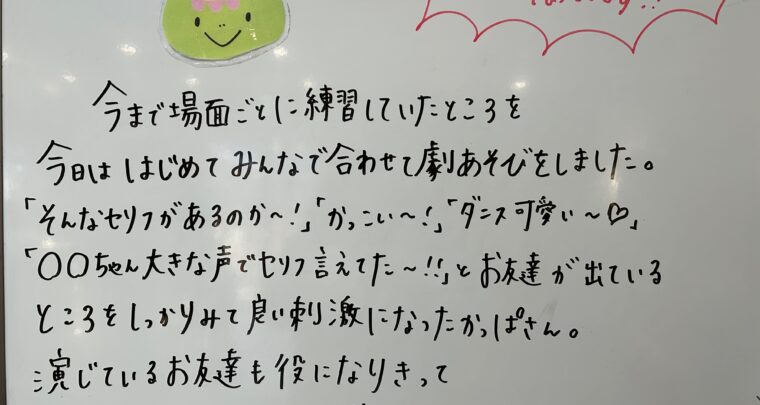 今まで場面ごとに練習していたところを
今日ははじめてみんなで合わせて劇あそびをしました。
「そんなセリフがあるのか〜!」「かっこい〜!」「ダンス可愛い〜♡」
「〇〇ちゃん大きな声でセリフ言えてた〜!!」とお友達が出ている
ところをしっかりみて良い刺激になったかっぱさん。
演じているお友達も役になりきって